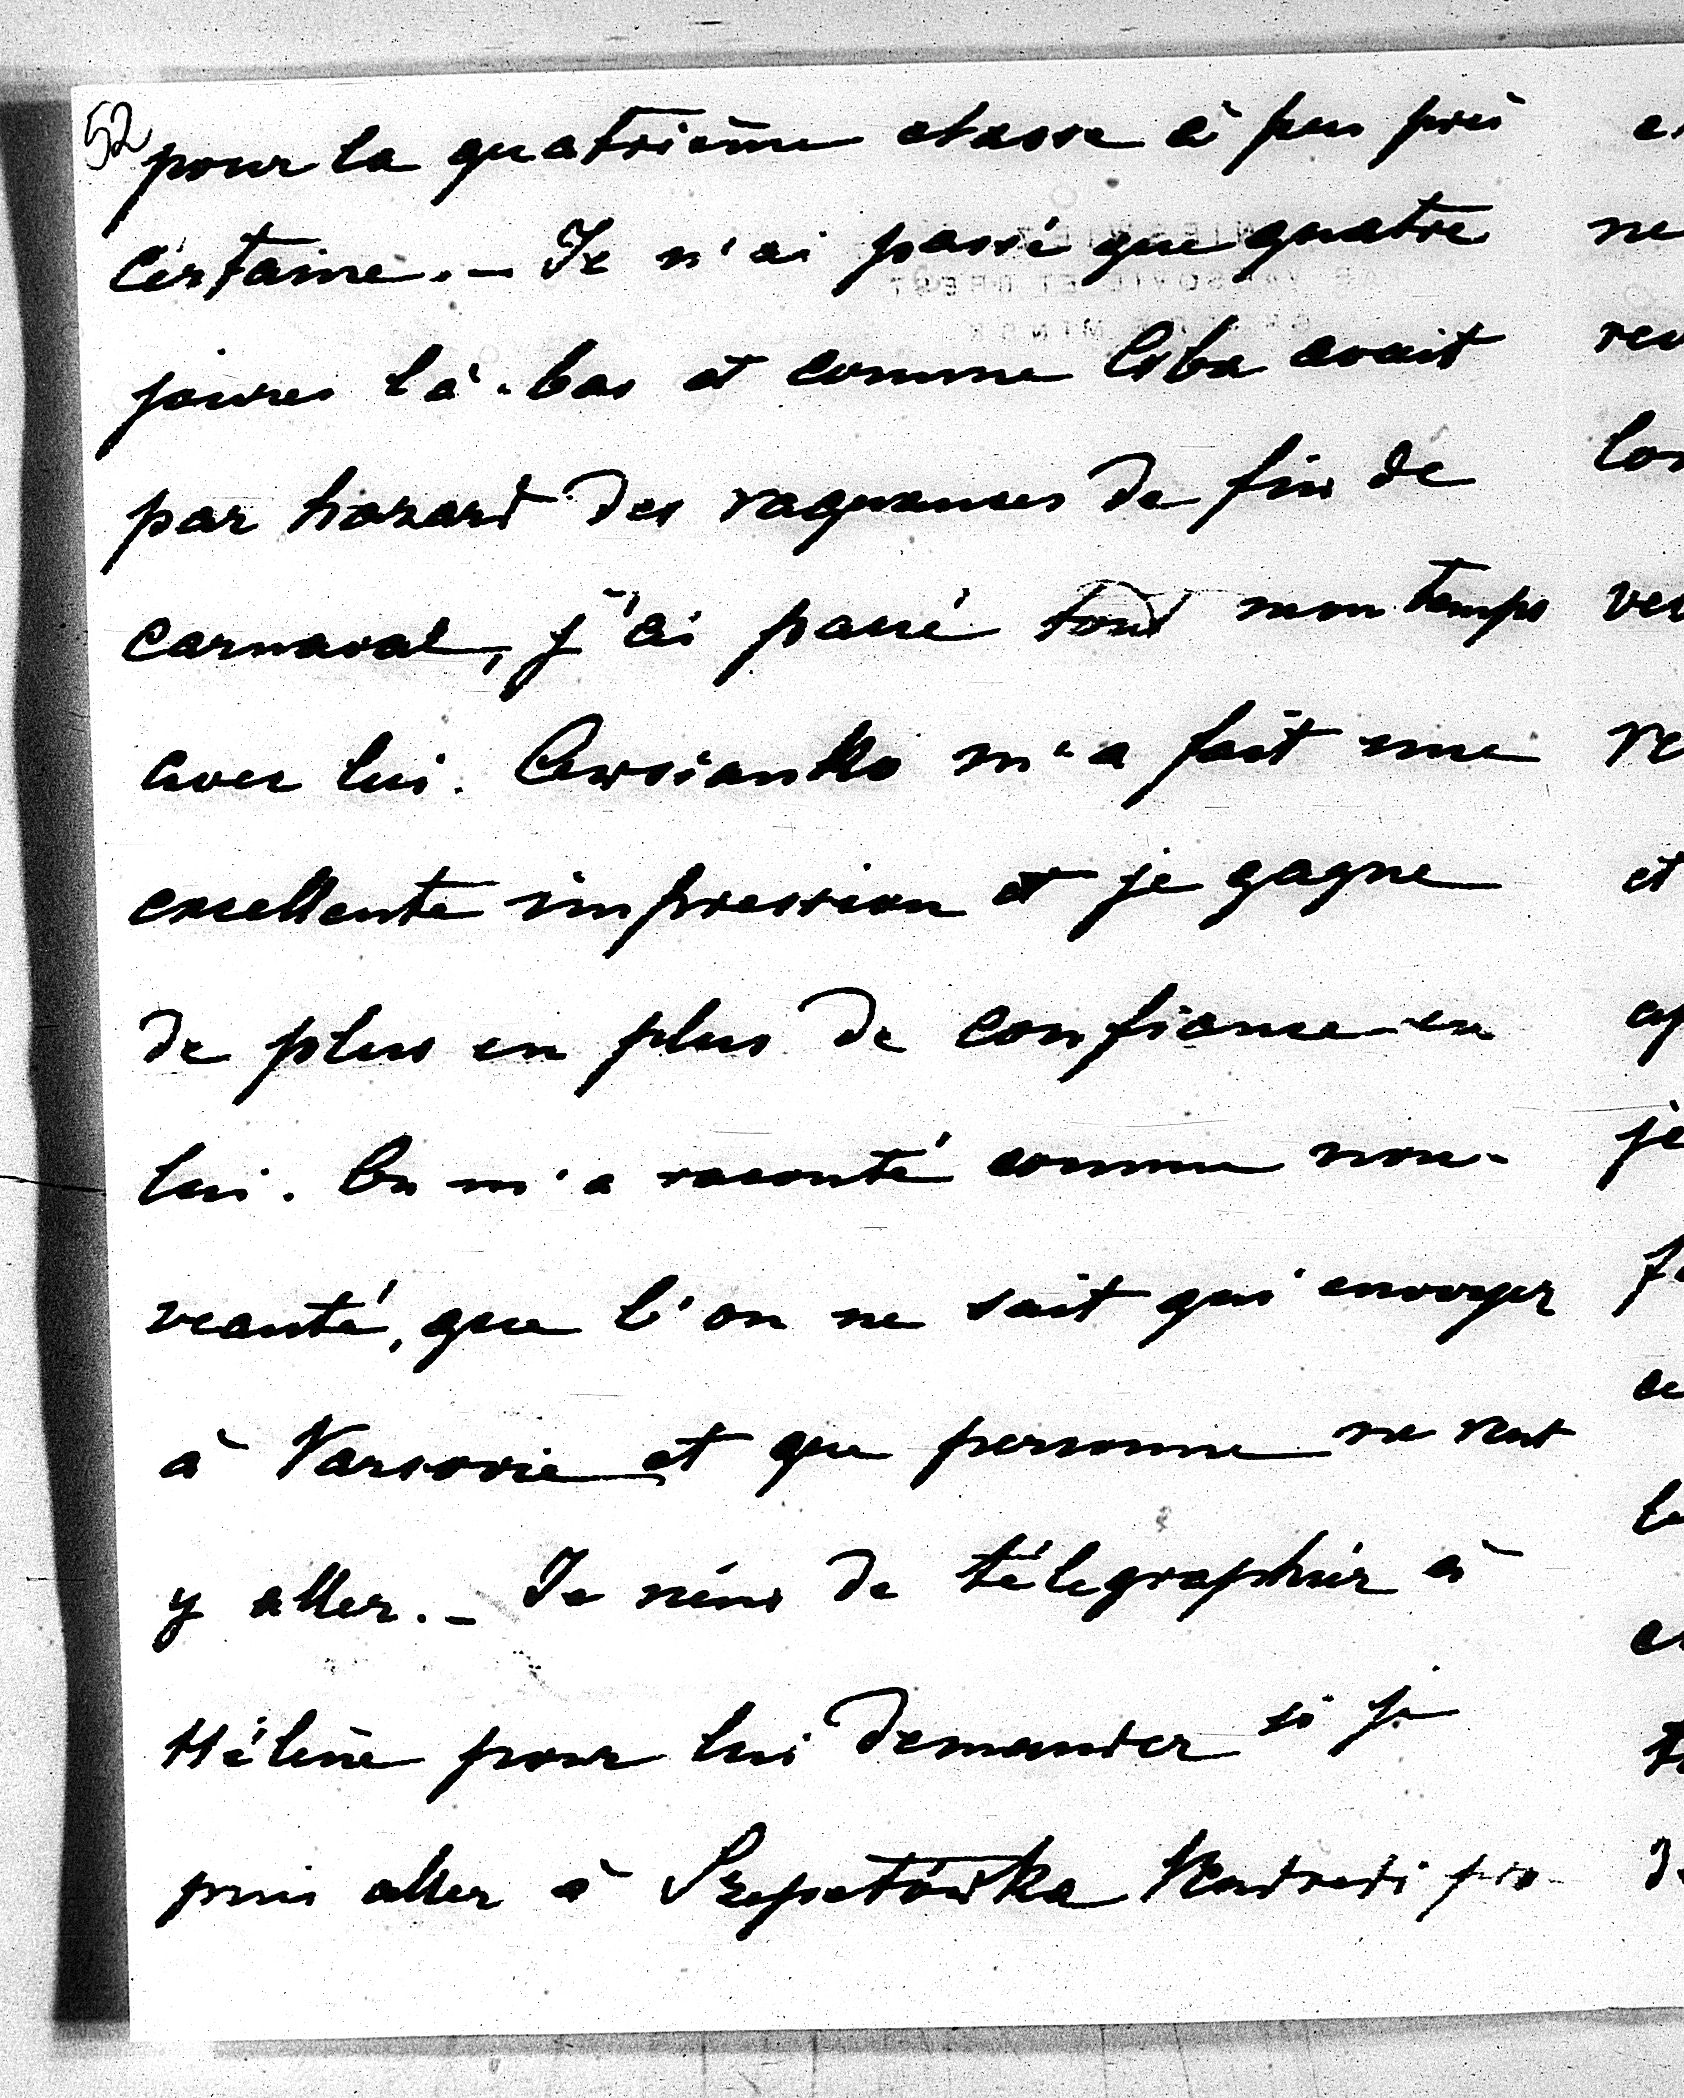 52
pour la quatrième classe à peu près
certaine. - Je n'ai passé que quatre
jours là-bas et comme Liba avait
par hazard des vaquances de fin de
carnaval, j'ai passé tout mon temps
avec lui. m'a fait une
excellente impression et je gagne
de plus en plus de confiance en
lui. On m'a raconté comme nou-
veauté, que l'on ne sait qui envoyer
à Varsovie et que personne ne veut
y aller. - Je viens de télégraphier à
Hélène pour lui demander si je
puis aller à Szepetówka Vendredi pro-